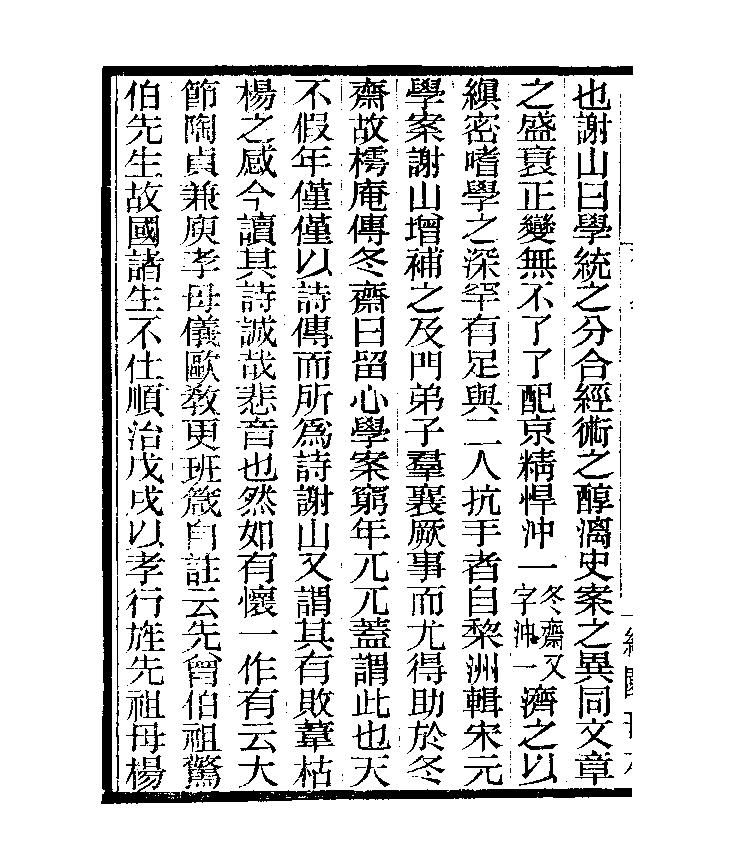 也謝山曰學統之分合經術之醇漓史案之異同文章
之盛衰正變無不了了配京精悍沖一冬齋又字沖一濟之以
縝密嗜學之深罕有足與二人抗手者自黎洲輯宋元
學案謝山增補之及門弟子羣襄厥事而尤得助於冬
齋故樗庵傳冬齋曰留心學案窮年兀兀蓋謂此也天
不假年僅僅以詩傳而所為詩謝山又謂其有敗葦枯
楊之感今讀其詩誠哉悲音也然如有懷一作有云大
節陶貞兼庾孝母儀歐敎更班箴自註云先曾伯祖驚
伯先生故國諸生不仕順治戊戌以孝行旌先祖母楊